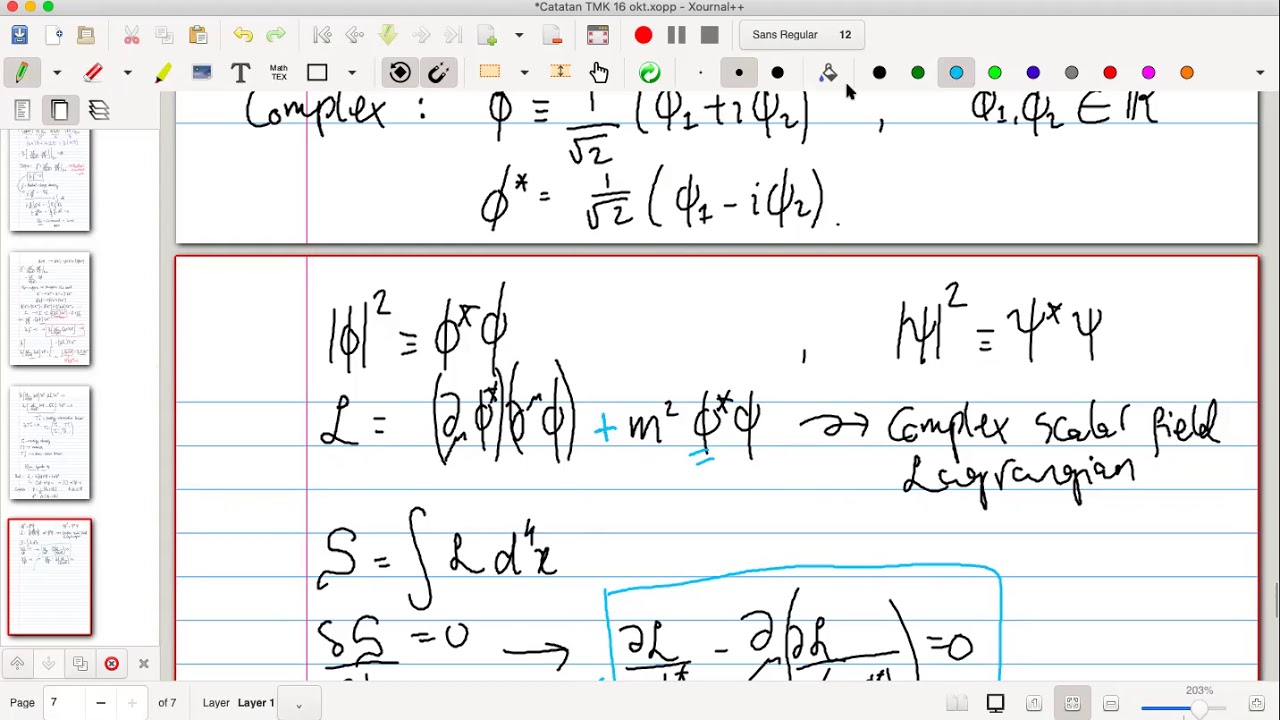 *Catatan TMK 16 okt.xopp - Xournal++
Sans Regular 12
Math TEX
Complex : ϕ ≡ 1/√2 (ϕ₁ + iϕ₂) , ϕ₁, ϕ₂ ∈ ℝ
ϕ* = 1/√2 (ϕ₁ - iϕ₂).
|ϕ|² ≡ ϕ*ϕ , |ψ|² ≡ ψ*ψ
ℒ = (∂_μ ϕ*)(∂^μ ϕ) + m² ϕ*ϕ → Complex scalar field
Lagrangian
S = ∫ ℒ d⁴x
δS = 0 → ∂ℒ - ∂_μ(∂ℒ) = 0
Page 7 of 7 Layer Layer 1
203%